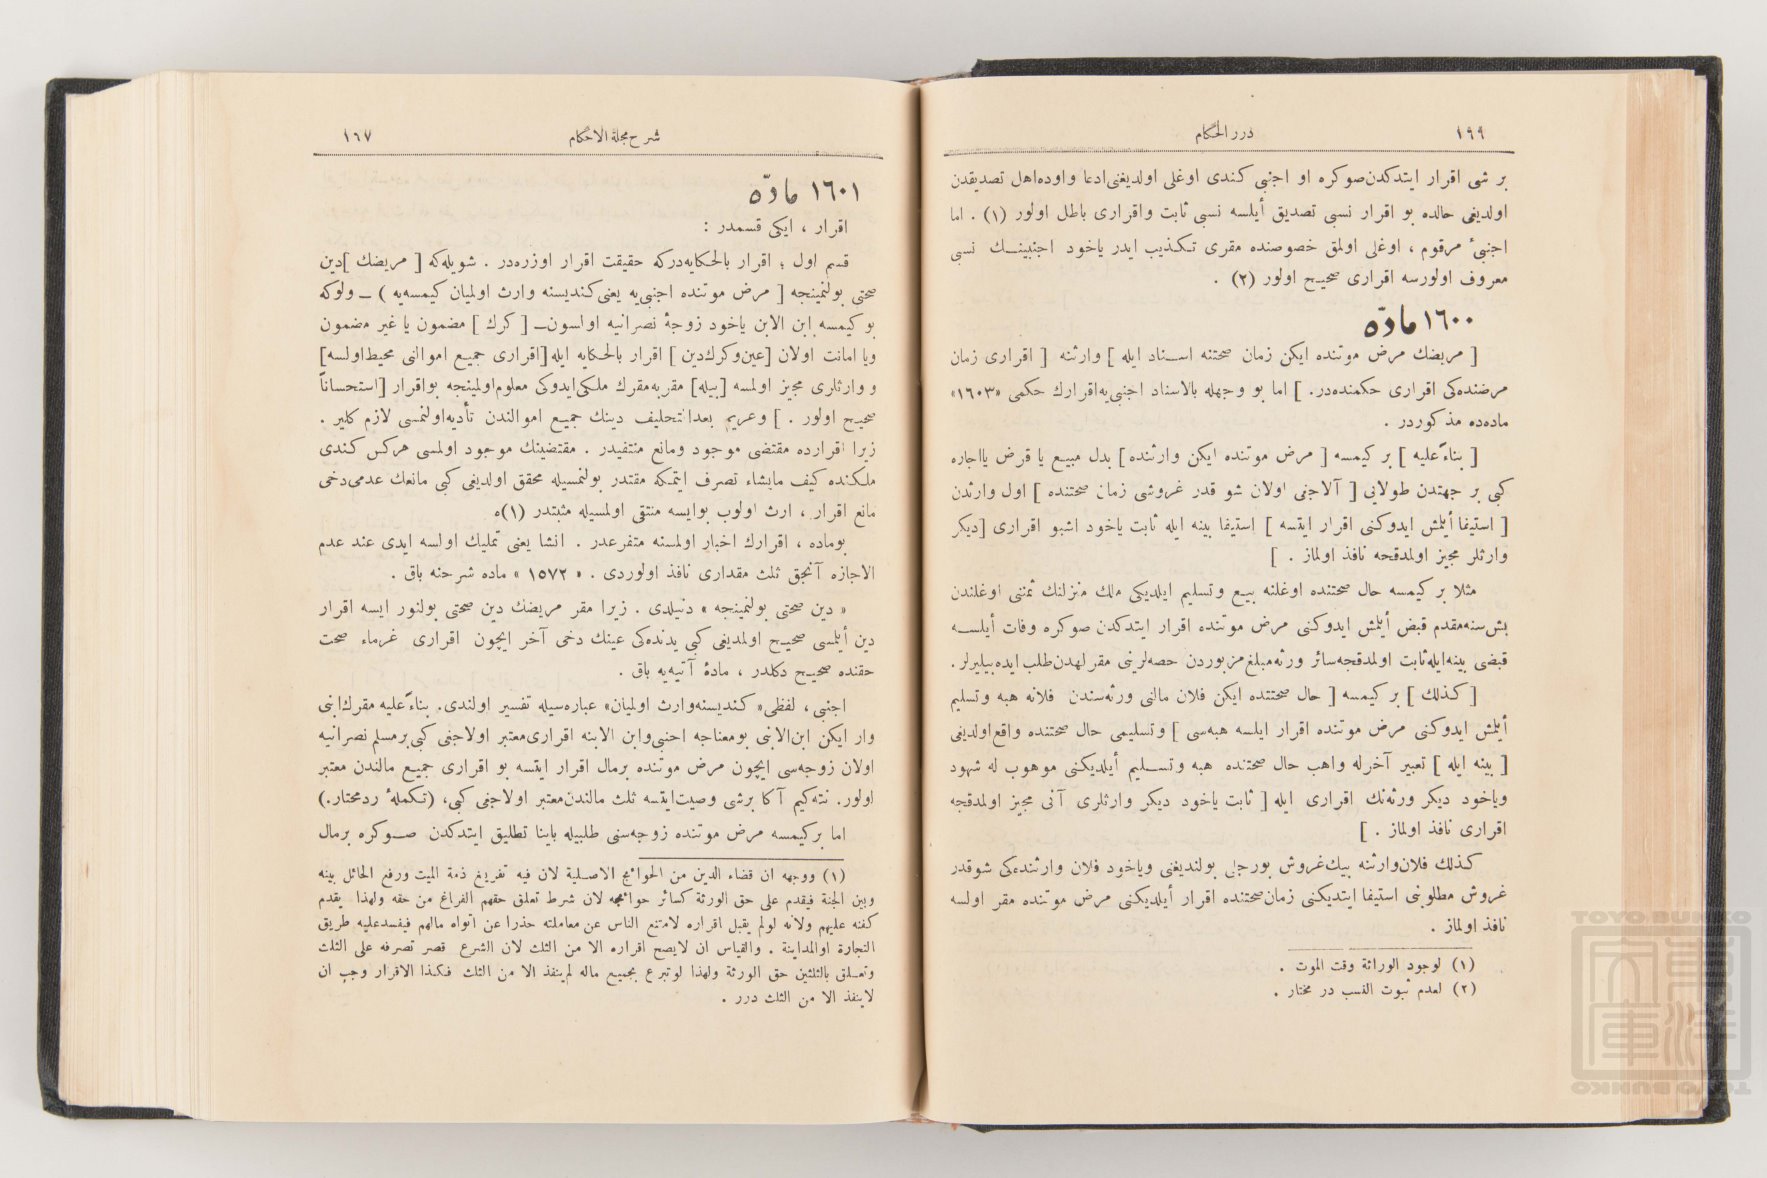 ١٩٩ درر الحكام
بر شی اقرار ایتدكدن‌صوكره او اجنبی كندی اوغلی اولدیغنی‌ادعا واوده‌اهل تصدیقدن
اولدیغی حالده بو اقرار نسبی تصدیق أیلسه نسبی ثابت واقراری باطل اولور (١) . اما
اجنبیٔ مرقوم ، اوغلی اولمق خصوصنده مقری تكذیب ایدر یاخود اجنبینك نسبی
معروف اولورسه اقراری صحیح اولور (٢) .
١٦٠٠ مادّه
[ مریضك مرض موتنده ایكن زمان صحتنه اسناد ایله ] وارثنه [ اقراری زمان
مرضنده‌كی اقراری حكمنده‌در. ] اما بو وجهله بالاسناد اجنبی‌یه‌اقرارك حكمی «١٦٠٣»
ماده‌ده مذكوردر .
[ بناءً علیه ] بر كیمسه [ مرض موتنده ایكن وارثنده ] بدل مبیع یا قرض یااجاره
كبی بر جهتدن طولایی [ آلاجغی اولان شو قدر غروشی زمان صحتنده ] اول وارثدن
[ استیفا أیلمش ایدوكنی اقرار ایتسه ] استیفا بینه ایله ثابت یاخود اشبو اقراری [دیكر
وارثلر مجیز اولمدقجه نافذ اولماز . ]
مثلا بر كیمسه حال صحتنده اوغلنه بیع وتسلیم ایلدیكی مالك منزلنك ثمننی اوغلندن
بش‌سنه‌مقدم قبض أیلمش ایدوكنی مرض موتنده اقرار ایتدكدن صوكره وفات أیلسه
قبضی بینه‌ایله‌ثابت اولمدقجه‌سائر ورثه‌مبلغ‌مزبوردن حصه‌لرنی مقر لهدن‌طلب ایده‌بیلیرلر.
[ كذلك ] بر كیمسه [ حال صحتنده ایكن فلان مالنی ورثه‌سندن فلانه هبه وتسلیم
أیلمش ایدوكنی مرض موتنده اقرار ایلسه هبه‌سی ] وتسلیمی حال صحتنده واقع‌اولدیغی
[ بینه ایله ] تعبیر آخرله واهب حال صحتنده هبه وتسلیم أیلدیكنی موهوب له شهود
ویاخود دیكر ورثه‌نك اقراری ایله [ ثابت یاخود دیكر وارثلری آنی مجیز اولمدقجه
اقراری نافذ اولماز . ]
كذلك فلان‌وارثنه بیك‌غروش بورجلی بولندیغنی ویاخود فلان وارثنده‌كی شوقدر
غروش مطلوبنی استیفا ایتدیكنی زمان‌صحتنده اقرار أیلدیكنی مرض موتنده مقر اولسه
نافذ اولماز .
(١) لوجود الوراثة وقت الموت .
(٢) لعدم ثبوت النسب در مختار .
شرح مجلة الاحكام ١٦٧
١٦٠١ مادّه
اقرار ، ایكی قسمدر :
قسم اول ؛ اقرار بالحكایه‌دركه حقیقت اقرار اوزره‌در . شویله‌كه [ مریضك ]دین
صحتی بولنمینجه [ مرض موتنده اجنبی‌یه یعنی‌كندیسنه وارث اولمیان كیمسه‌یه ) ـ ولوكه
بو كیمسه ابن الابن یاخود زوجهٔ نصرانیه اولسون‌ـ [ كرك ] مضمون یا غیر مضمون
ویا امانت اولان [عین‌وكرك‌دین ] اقرار بالحكایه ایله [اقراری جمیع اموالنی محیط‌اولسه]
و وارثلری مجیز اولمسه [بیله] مقربه‌مقرك ملكی‌ایدوكی معلوم‌اولمینجه بواقرار [استحساناً
صحیح اولور . ] وغریم بعدالتحلیف دینك جمیع اموالندن تأدیه‌اولنمسی لازم كلیر .
زیرا اقرارده مقتضی موجود ومانع منتفیدر . مقتضینك موجود اولمسی هركس كندی
ملكنده كیف مایشاء تصرف ایتمكه مقتدر بولنمسیله محقق اولدیغی كبی مانعك عدمی‌دخی
مانع اقرار ، ارث اولوب بوایسه منتفی اولمسیله مثبتدر (١)ه
بوماده ، اقرارك اخبار اولمسنه متفرعدر . انشا یعنی تملیك اولسه ایدی عند عدم
الاجازه آنجق ثلث مقداری نافذ اولوردی . « ١٥٧٢ » ماده شرحنه باق .
« دین صحتی بولنمینجه » دنیلدی . زیرا مقر مریضك دین صحتی بولنور ایسه اقرار
دین أیلمسی صحیح اولمدیغی كبی یدنده‌كی عینك دخی آخر ایچون اقراری غرماء صحت
حقنده صحیح دكلدر ، مادهٔ آتیه‌یه باق .
اجنبی ، لفظی« كندیسنه‌وارث اولمیان» عباره‌سیله تفسیر اولندی. بناءً علیه مقرك‌ابنی
وار ایكن ابن‌الابنی بومعناجه اجنبی‌وابن الابنه اقراری‌معتبر اولاجغی كبی‌برمسلم نصرانیه
اولان زوجه‌سی ایچون مرض موتنده برمال اقرار ایتسه بو اقراری جمیع مالندن معتبر
اولور. نته‌كیم آكا برشی وصیت‌ایتسه ثلث مالندن‌معتبر اولاجغی كبی، (تكملهٔ ردمختار.)
اما بركیمسه مرض موتنده زوجه‌سنی طلبیله باینا تطلیق ایتدكدن صوكره برمال
(١) ووجهه ان قضاء الدين من الحوائج الاصلية لان فيه تفريغ ذمة الميت ورفع الحائل بينه
وبين الجنة فيقدم على حق الورثة كسائر حوائجه لان شرط تعلق حقهم الفراغ من حقه ولهذا يقدم
كفنه عليهم ولانه لولم يقبل اقراره لامتنع الناس عن معاملته حذرا عن اتواه مالهم فيفسدعليه طريق
التجارة اوالمداينة . والقياس ان لايصح اقراره الا من الثلث لان الشرع قصر تصرفه على الثلث
وتعلق بالثلثين حق الورثة ولهذا لوتبرع بجميع ماله لم‌ينفذ الا من الثلث فكذا الاقرار وجب ان
لاينفذ الا من الثلث درر .
TOYO BUNKO